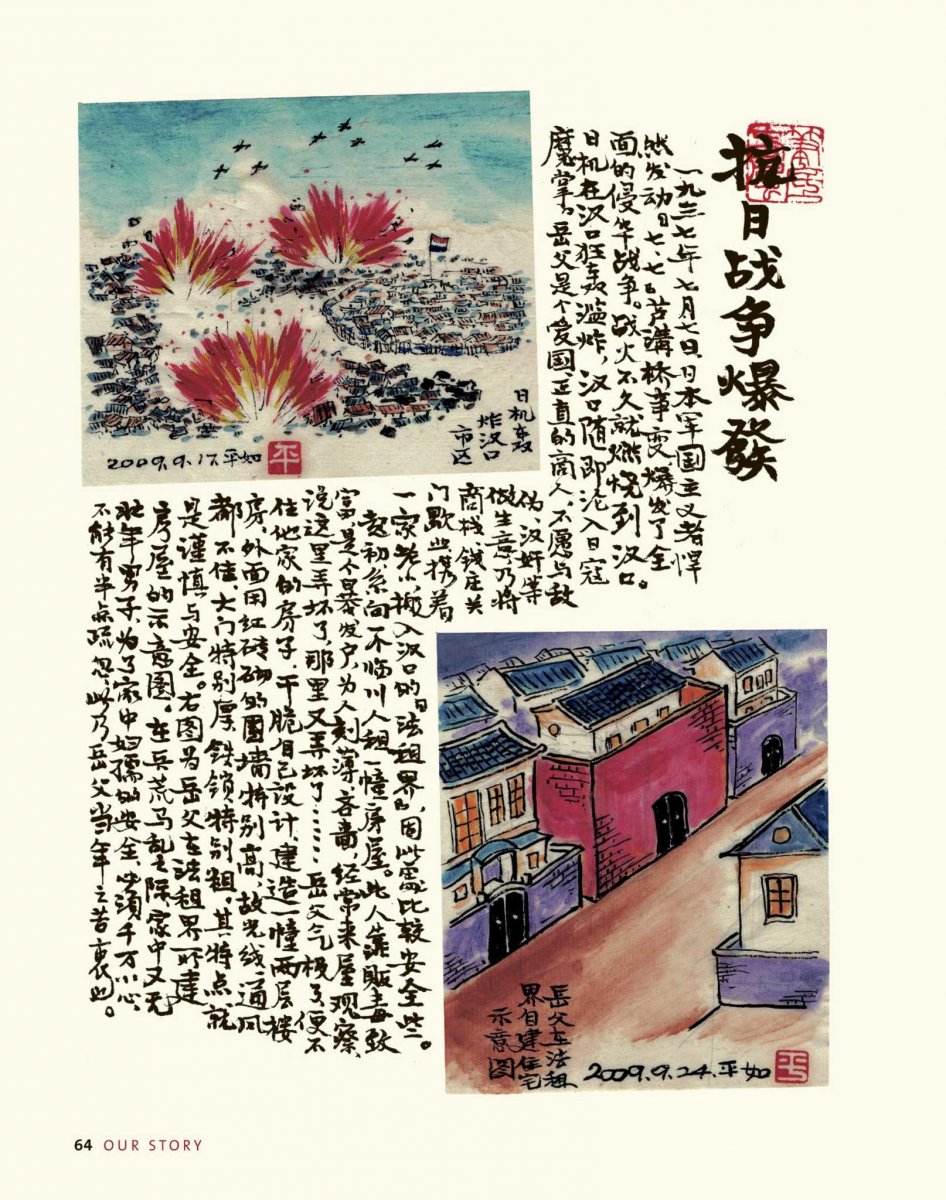 抗日战争爆發
一九三七年七月七日,日本军国主义者悍
然发动“七·七”芦溝桥事变,爆发了全
面的侵华战争。战火不久就燃烧到汉口。
日机在汉口狂轰滥炸,汉口随即沦入日寇
魔掌。岳父是个爱国正直的商人,不愿与敌
伪、汉奸等
做生意,乃将
商栈、钱庄关
门歇业,携着
一家老小搬入汉口的“法租界”,因此处比较安全些。
起初系向一个临川人租一幢房屋。此人靠贩毒致
富,是个暴发户,为人刻薄吝啬,经常来屋观察,
说这里弄坏了,那里又弄坏了……岳父气极了,便不
住他家的房子,干脆自己设计建造一幢两层楼
房,外面用红砖砌的围墙特别高,故光线、通风
都不佳,大门特别厚,铁锁特别粗,其特点就
是谨慎与安全。右图为岳父在法租界所建
房屋的示意图。在兵荒马乱之际,家中又无
壮年男子,为了家中妇孺的安全,必须千万小心,
不能有半点疏忽,此乃岳父当年之苦衷也。
日机轰
炸汉口
市区
2009.9.17.平如
平
岳父在法租
界自建住宅
示意图
2009.9.24.平如
64 OUR STORY